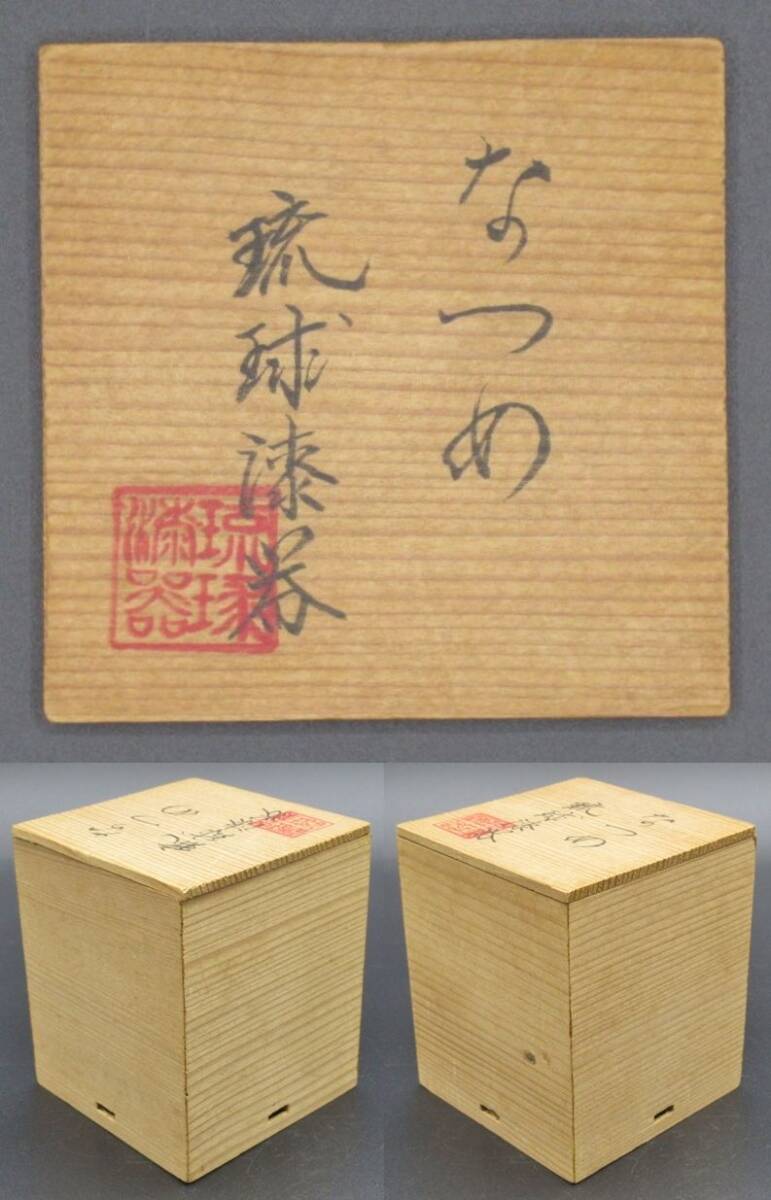 なつめ
琉球漆器
琉球
漆器